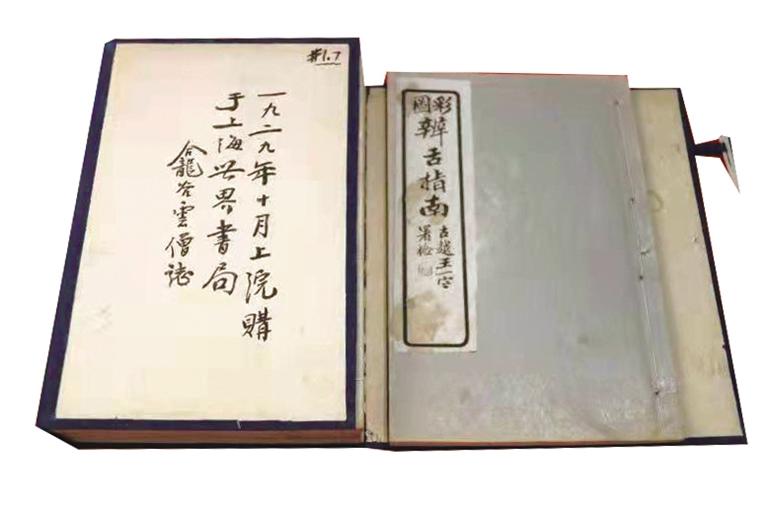 #1.7
一九二九年十月上浣購
于上海世界書局
龍谷雲僧誌
彩圖
辨舌指南
古越王一
署檢